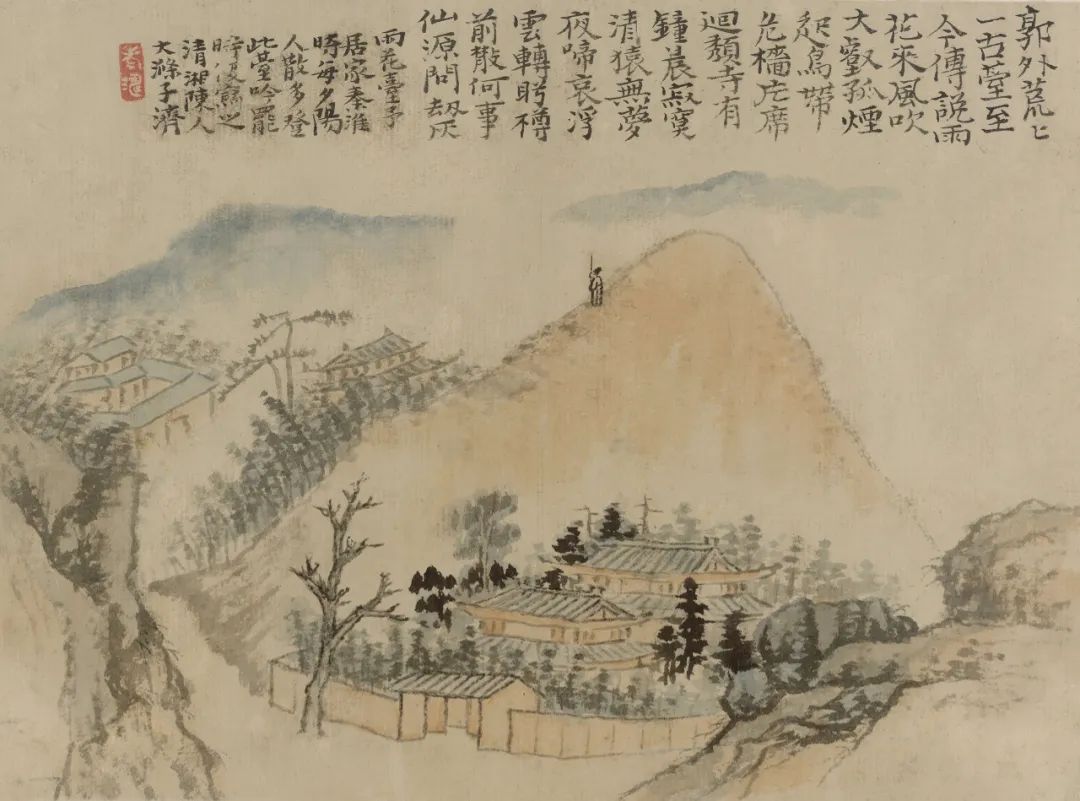 郭外荒〻
一古臺至
今傳説雨
花來風吹
大壑孤煙
起鳥帶
危檣片席
迴頹寺有
鐘晨寂寞
清猿無夢
夜啼哀浮
雲轉眄樽
前散何事
仙源問劫灰
雨花臺予
居家秦淮
時每夕陽
人散多登
此臺吟罷
時復寫之
清湘陳人
大滌子濟